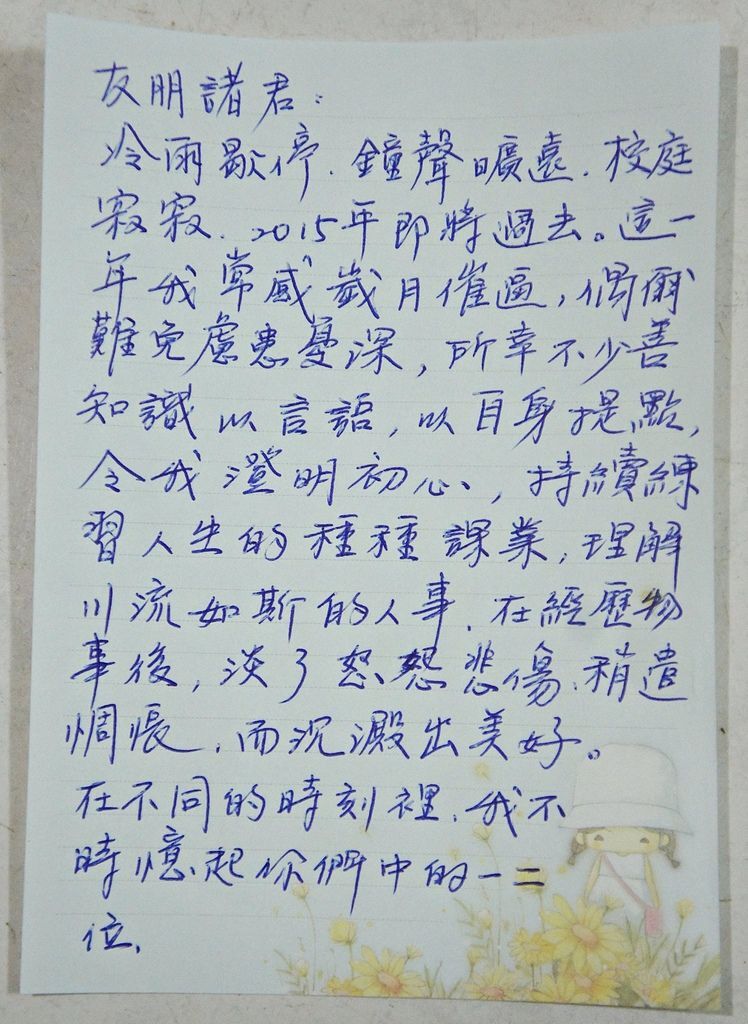 友朋諸君：
冷雨歇停．鐘聲曠遠．校庭
寂寂．2015年即將過去。這一
年我常感歲月催逼，偶爾
難免慮患憂深，所幸不少善
知識以言語，以自身提點，
令我澄明初心，持續練
習人生的種種課業，理解
川流如斯的人事．在經歷物
事後，淡了怒怨悲傷．稍遣
惆悵，而沉澱出美好。
在不同的時刻裡．我不
時憶起你們中的一二
位，